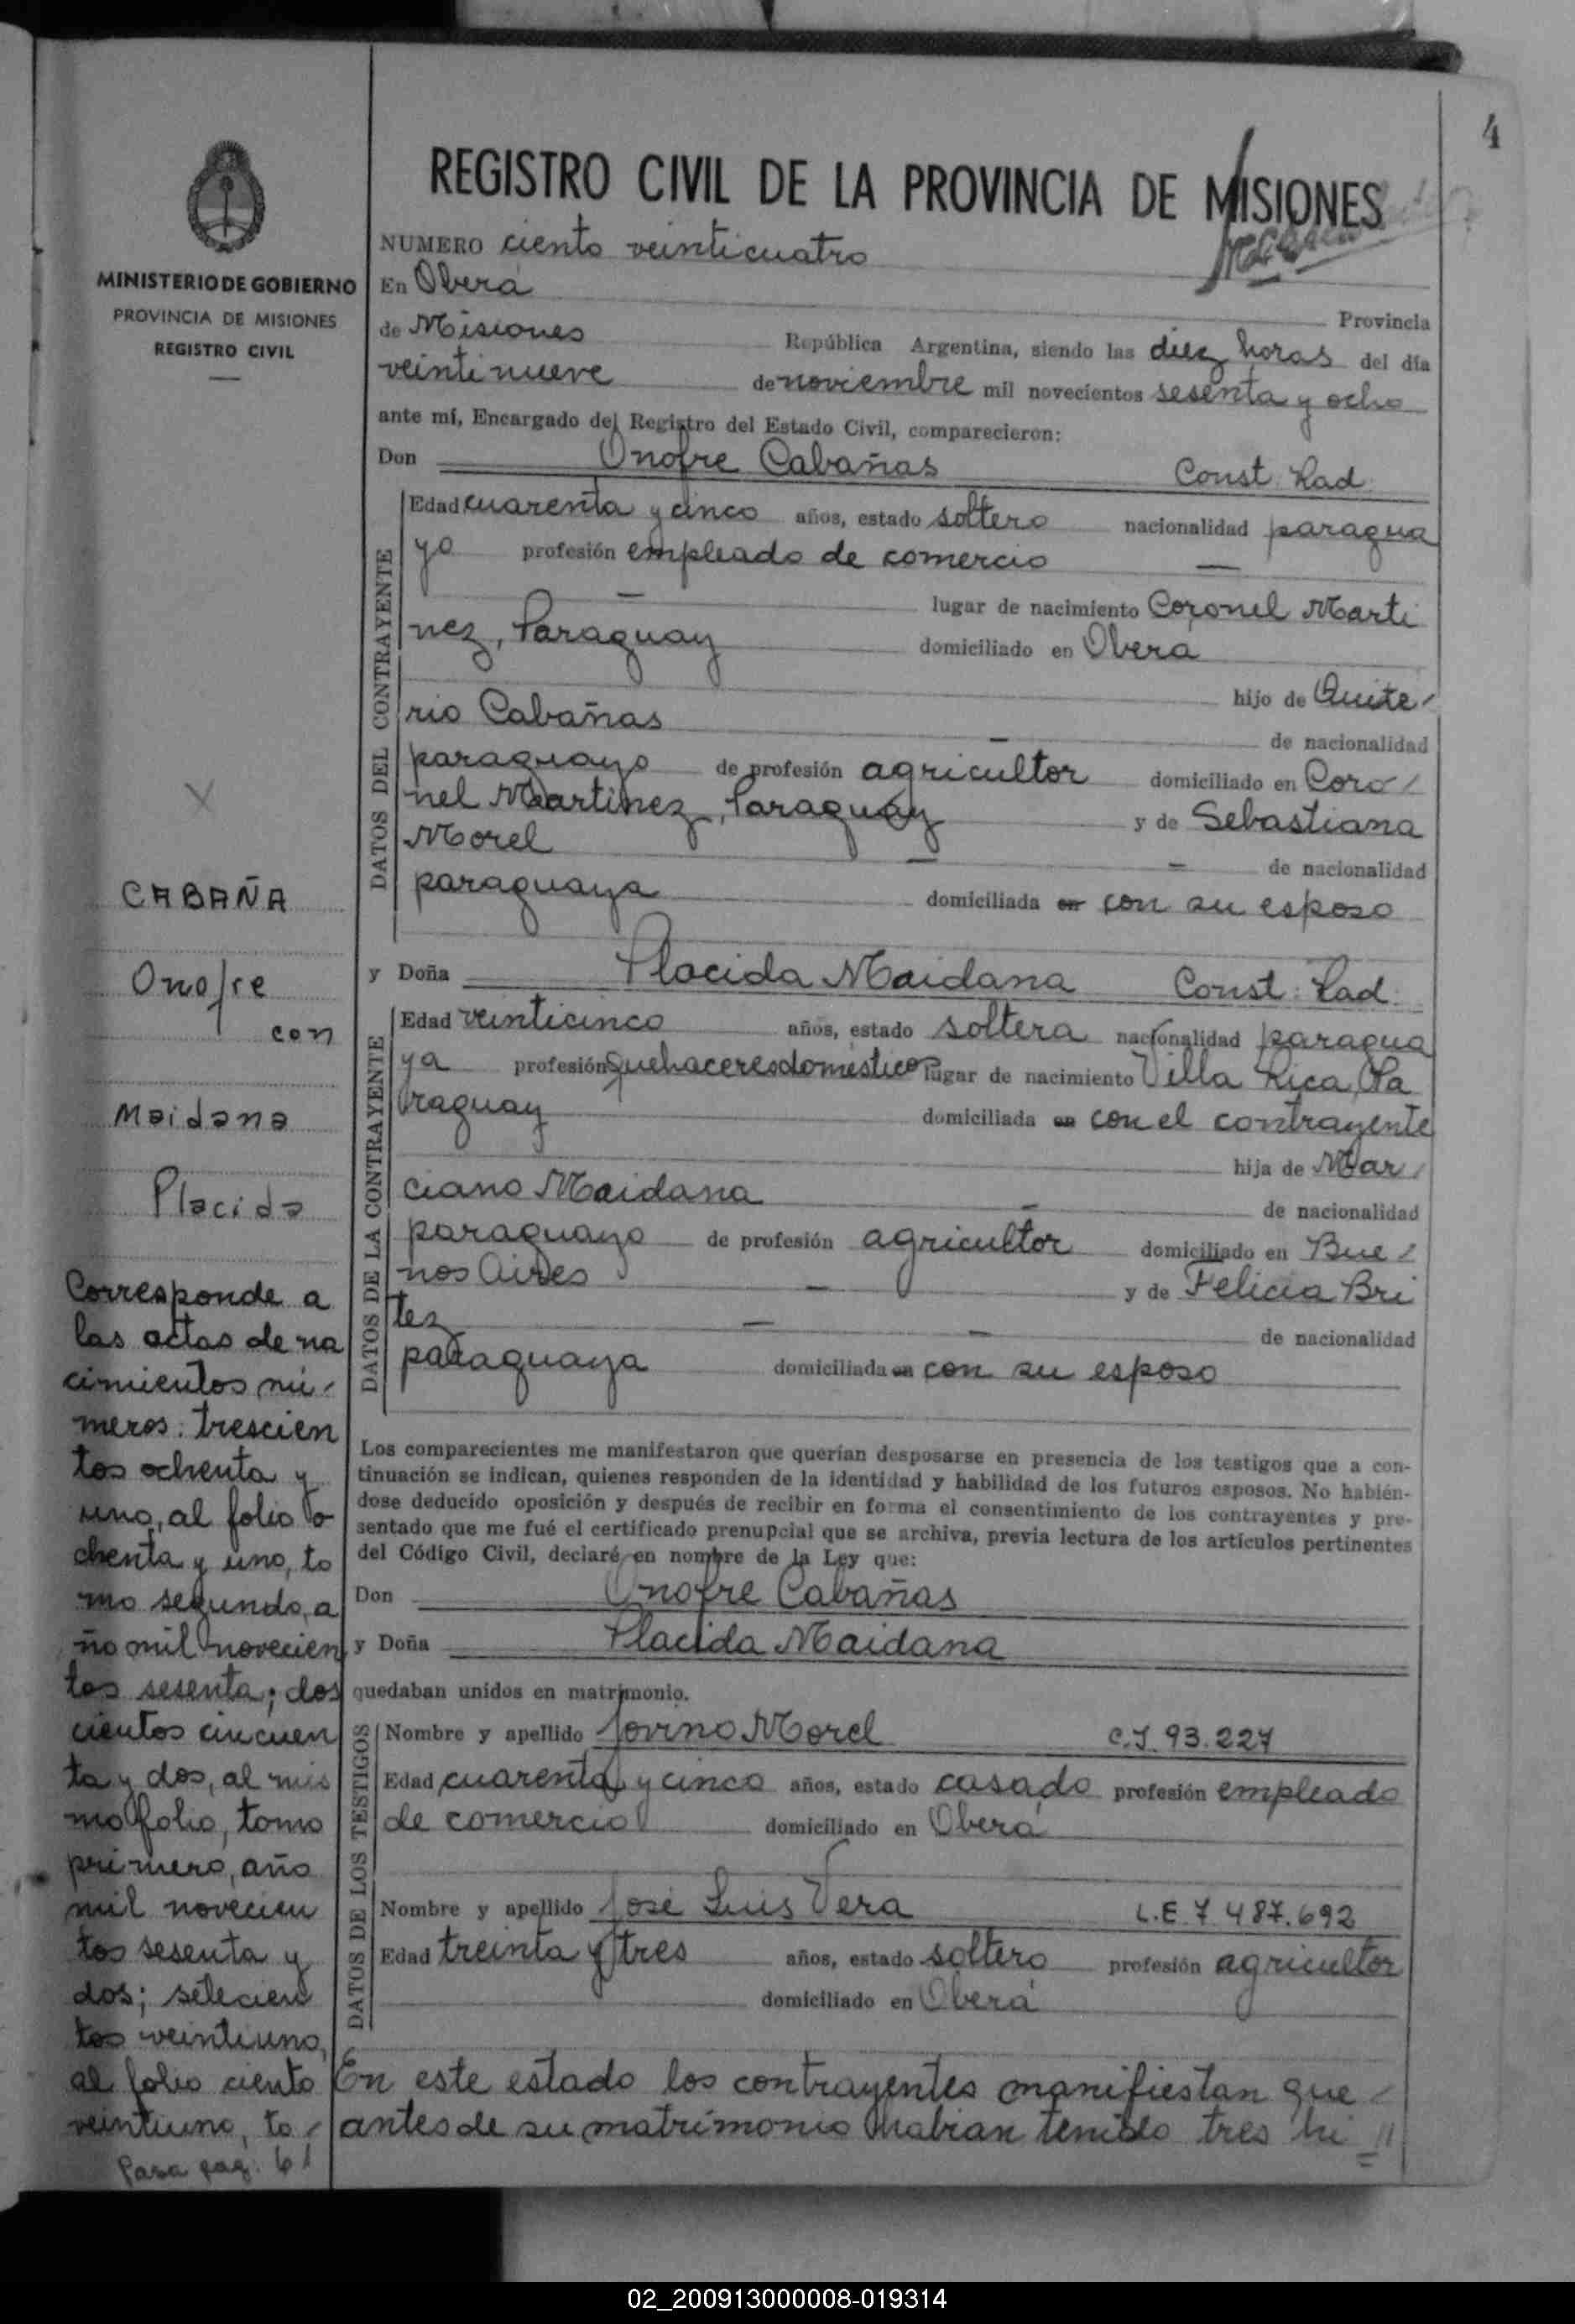 4
REGISTRO CIVIL DE LA PROVINCIA DE MISIONES
MINISTERIO DE GOBIERNO
PROVINCIA DE MISIONES
REGISTRO CIVIL
NUMERO ciento veinticuatro
En Oberá
Provincia
de Misiones República Argentina, siendo las diez horas del día
veintinueve de noviembre mil novecientos sesenta y ocho
ante mí, Encargado del Registro del Estado Civil, comparecieron:
Don Onofre Cabañas Const. Rad.
DATOS DEL CONTRAYENTE
Edad cuarenta y cinco años, estado soltero nacionalidad paragua
yo profesión empleado de comercio —
— lugar de nacimiento Coronel Marti
nez, Paraguay domiciliado en Oberá
hijo de Quite/
rio Cabañas — de nacionalidad
paraguayo de profesión agricultor domiciliado en Coro/
nel Martinez, Paraguay y de Sebastiana
Morel — — de nacionalidad
paraguaya domiciliada en con su esposo
y Doña Placida Maidana Const. Rad.
DATOS DE LA CONTRAYENTE
Edad veinticinco años, estado soltera nacionalidad paragua
ya profesión quehaceres domésticos lugar de nacimiento Villa Rica, Pa
raguay domiciliada en con el contrayente
hija de Mar/
ciano Maidana — de nacionalidad
paraguayo de profesión agricultor domiciliado en Bue/
nos Aires — y de Felicia Bri
tez — — de nacionalidad
paraguaya domiciliada en con su esposo
Los comparecientes me manifestaron que querían desposarse en presencia de los testigos que a con-
tinuación se indican, quienes responden de la identidad y habilidad de los futuros esposos. No habién-
dose deducido oposición y después de recibir en forma el consentimiento de los contrayentes y pre-
sentado que me fué el certificado prenupcial que se archiva, previa lectura de los artículos pertinentes
del Código Civil, declaré en nombre de la Ley que:
Don Onofre Cabañas
y Doña Placida Maidana
quedaban unidos en matrimonio.
DATOS DE LOS TESTIGOS
Nombre y apellido Jovino Morel C.I. 93.227
Edad cuarenta y cinco años, estado casado profesión empleado
de comercio domiciliado en Oberá
Nombre y apellido José Luis Vera L.E. 7 487.692
Edad treinta y tres años, estado soltero profesión agricultor
domiciliado en Oberá
En este estado los contrayentes manifiestan que/
antes de su matrimonio habían tenido tres hi //
CABAÑA
Onofre
con
Maidana
Placida
Corresponde a
las actas de na
cimientos nú/
meros: trescien
tos ochenta y
uno, al folio o
chenta y uno, to
mo segundo, a
ño mil novecien
tos sesenta; dos
cientos cincuen
ta y dos, al mis
mo folio, tomo
primero, año
mil novecien
tos sesenta y
dos; setecien
tos veintiuno,
al folio ciento
veintiuno, to/
Pasa pag. 61
02_200913000008-019314